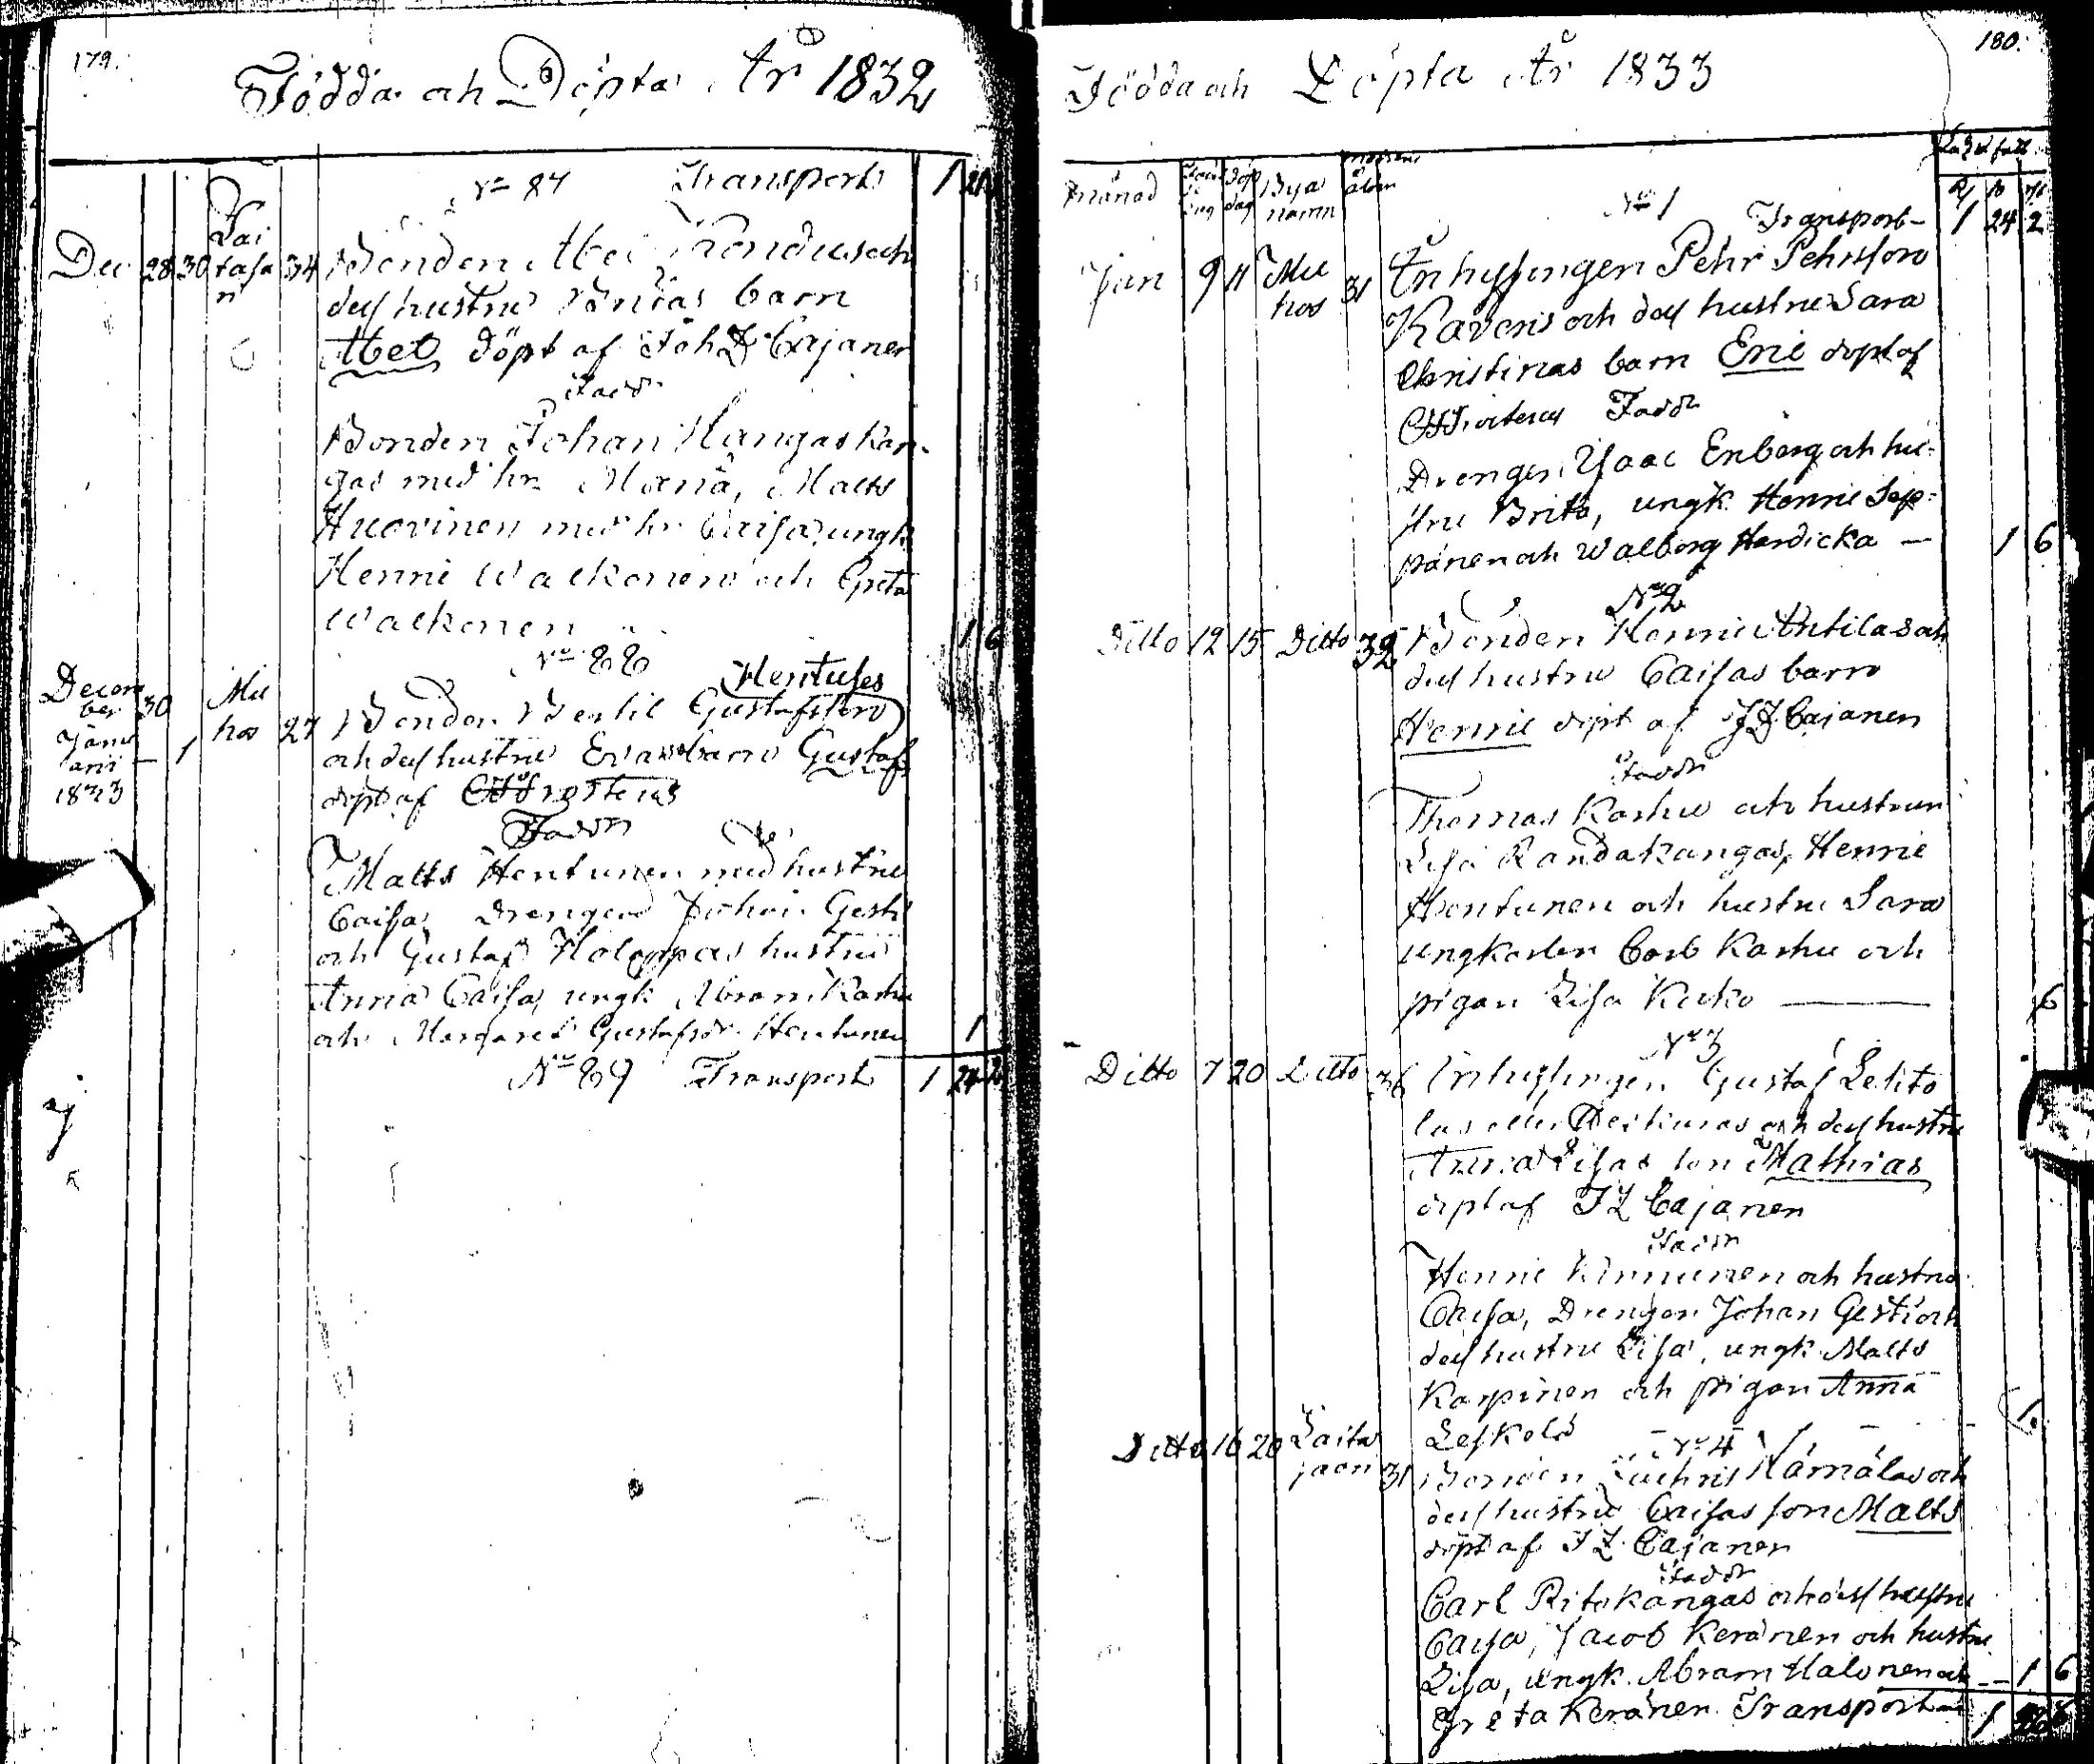 179.
Födda och Döpta År 1832
No 87 Transport 1
Dec 28 30 Lai tasa n 34 Bonden Abel och
dess hustru barn
Abel döpt af Joh Z Cajanen
Fadd
Bonden Johan Hangaskan-
gas med h. Maria, Matts
Huovinen med h. Caisa, ungk
Henric Walkonen och Greta
Walkonen 1 6
No 88
Hentuses
Decem ber 30 Mu hos 27 Bonden Bertil Gustafsson
Janu arii 1833 — 1 och dess hustru Evas barn Gustaf
döpt af
Faddr
Matts Hentunen med hustru
Caisa, Drengen Johan Gesti
och Gustaf Holappas hustru
Anna Caisa, ungk Abram Karhu
och Margaret Gustafsdr Hentunen 1
No 89 Transport 1 24 2
180.
Födda och Döpta År 1833
Månad dag Döp dag Bya namn ålder
No 1 Transport 1 24 2
Jan 9 11 Mu hos 31 Inhysingen Pehr Pehrsson
Kävens och dess hustru Sara
Christinas barn Eric döpt af
Faddr
Drengen Isaac Enberg och hu-
stru Brita, ungk. Henric Sep-
pänen och Walborg Hardicka — 1 6
No 2
Ditto 12 15 Ditto 32 Bonden Henric Anttilas och
dess hustru Caisas barn
Henric döpt af J Z Cajanen
Faddr
Thomas Karhu och hustrun
Lisa Randakangas, Henric
Hentunen och hustru Sara
ungkarlen Carl Karhu och
pigan Lisa Kuko — 6
No 3
Ditto 7 20 Ditto 36 Inhysingen Gustaf Lehto
las eller och dess hustru
Anna Lisas son Mathias
döpt af J Z Cajanen
Faddr
Henric Kinnunen och hustru
Caisa, Drengen Johan Gesti och
dess hustru Lisa, ungk. Matts
Karpinen och pigan Anna
Leskelä 1
No 4
Ditto 16 20 Laita saari 31 Bonden Zachris Hämäläs och
dess hustru Caisas son Matts
döpt af J Z Cajanen
Faddr
Carl Ritokangas och dess hustru
Caisa, Jacob Keränen och hustru
Lisa, ungk. Abram Halonen och — 1 6
Greta Keränen. Transport 1